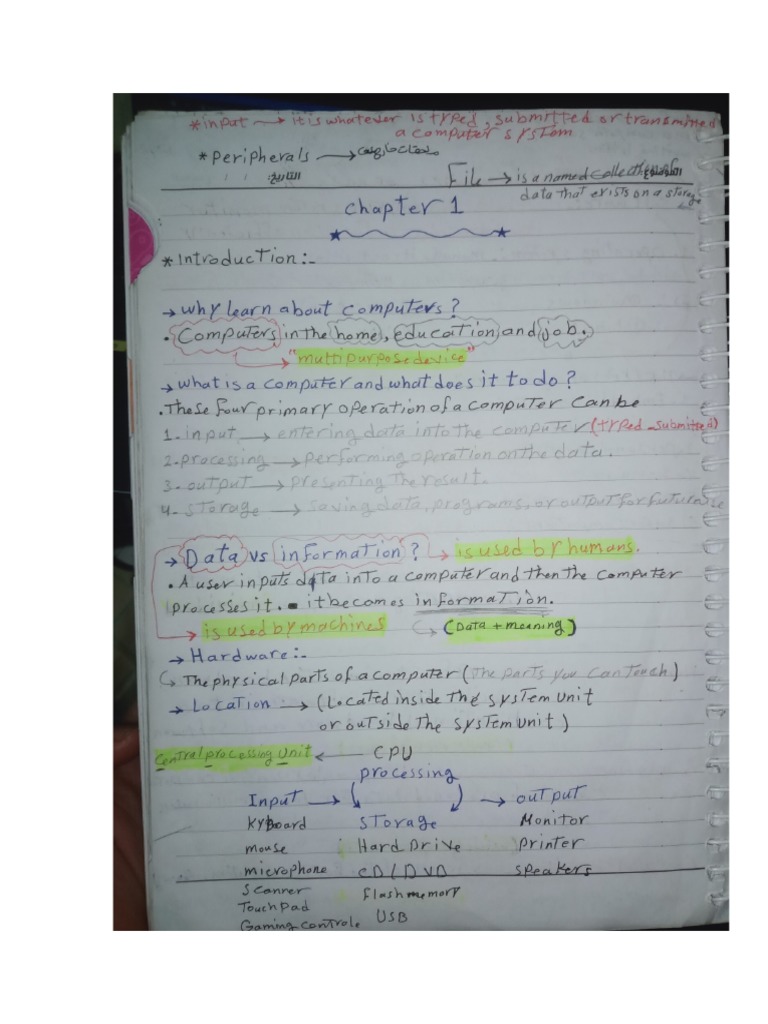 *input → it is whatever is typed, submitted or transmitted
a computer system
*Peripherals →
التاريخ:
File → is a named collect
data that exists on a storage
chapter 1
*Introduction:-
→ why learn about computers?
. Computers in the home, education and job.
"multipurpose device"
→ what is a computer and what does it to do?
. These four primary operation of a computer can be
1. input → entering data into the computer (typed - submitted)
2. processing → performing operation on the data.
3. output → presenting the result.
4. storage → saving data, programs, or output for future use
→ Data vs information? → is used by humans.
. A user inputs data into a computer and then the computer
processes it. it becomes information.
→ is used by machines (Data + meaning)
→ Hardware:-
The physical parts of a computer (The parts you can touch)
→ Location → (Located inside the system unit
or outside the system unit)
Central processing Unit ← CPU
processing
Input → storage → output
Kyboard Monitor
mouse Hard Drive Printer
microphone CD/DVD speakers
Scanner flash memory
Touch Pad USB
Gaming controle